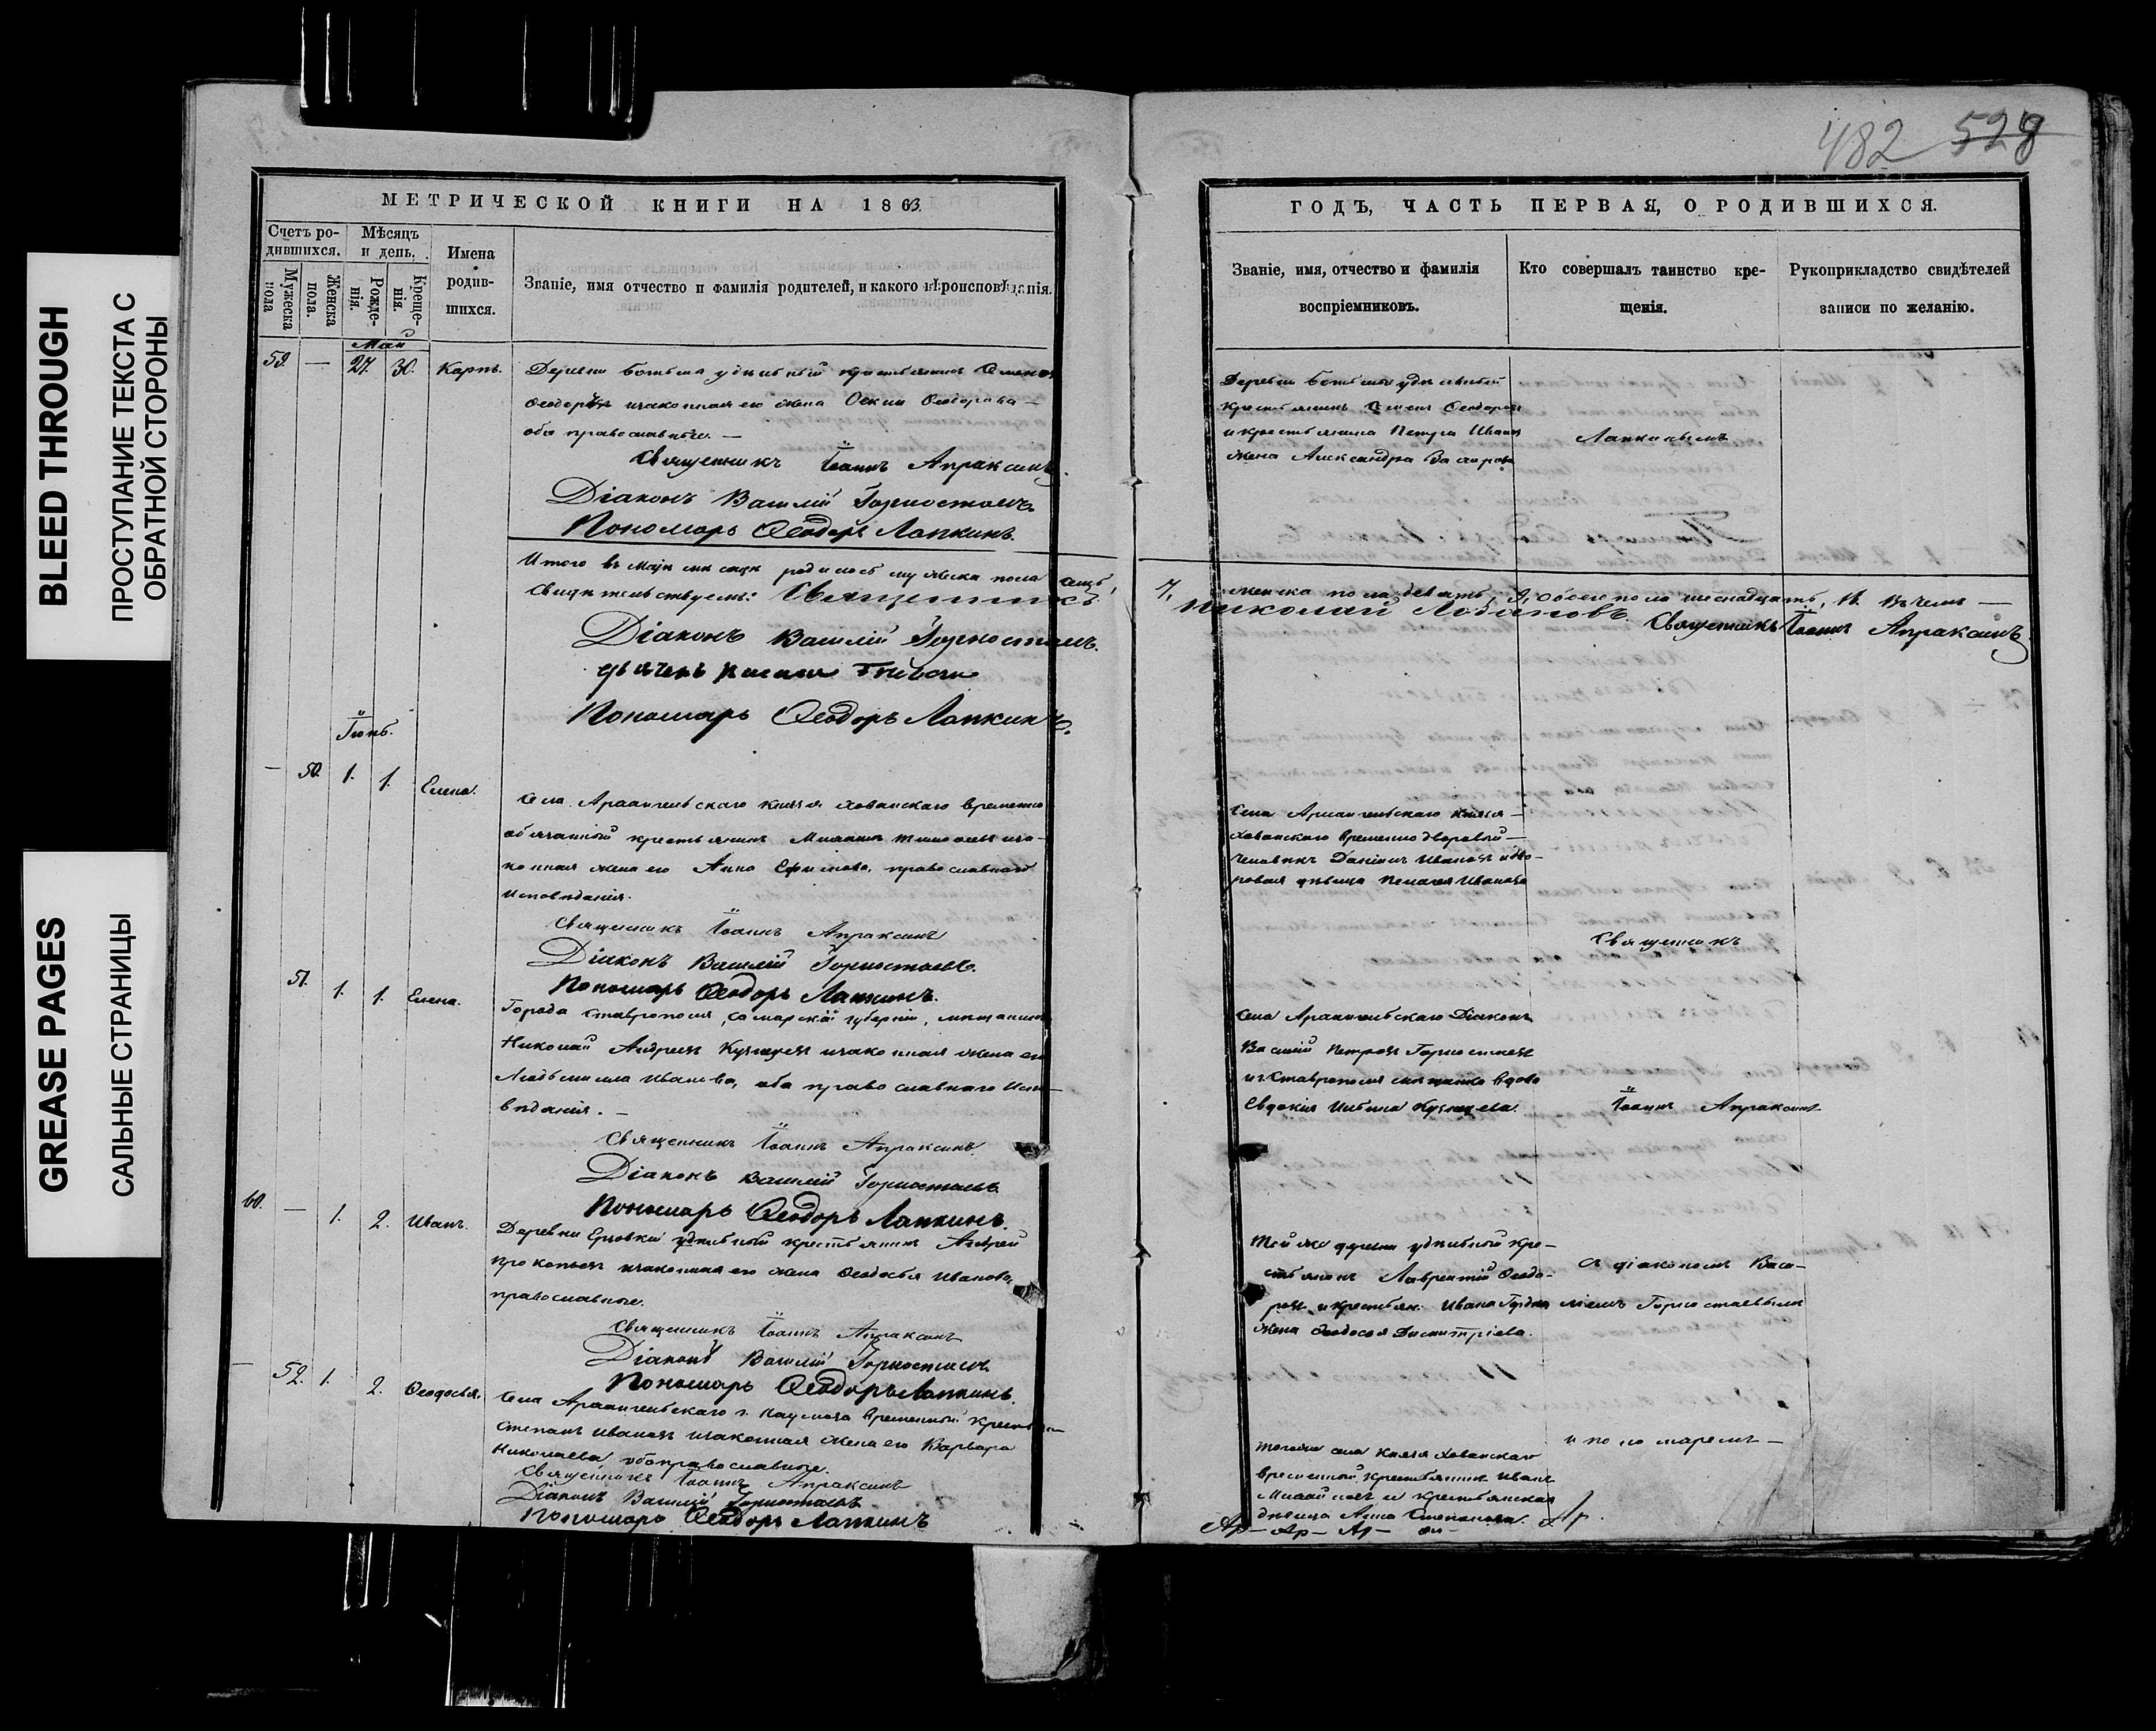 BLEED THROUGH
ПРОСТУПАНИЕ ТЕКСТА С
ОБРАТНОЙ СТОРОНЫ
GREASE PAGES
САЛЬНЫЕ СТРАНИЦЫ
482 528
МЕТРИЧЕСКОЙ КНИГИ НА 1863
Счетъ ро-
дившихся.
Мужеска
пола
Женска
пола.
Мѣсяцъ
и день.
Рожде-
нія.
Креще-
нія.
Имена
родив-
шихся.
Званіе, имя отчество и фамилія родителей, и какого вѣроисповѣданія.
Май
59. — 27. 30. Карпъ.
Деревни удѣльный крестьянинъ
законная его жена Ѳеодорова —
оба православные. —
Священникъ Іоаннъ Апраксинъ
Діаконъ Василій Горностаевъ
Пономарь Ѳеодоръ Лапкинъ.
Итого въ маѣ родилось мужеска пола семь,
Свидѣтельствуемъ: Священникъ
Діаконъ Василій Горностаевъ.
Пономарь Ѳеодоръ Лапкинъ.
Іюнь.
— 50. 1. 1. Елена.
Села Архангельскаго князя Хованскаго временно
обязанный крестьянинъ за-
конная жена его Анна Ефимова, православнаго
исповѣданія.
Священникъ Іоаннъ Апраксинъ
Діаконъ Василій Горностаевъ.
Пономарь Ѳеодоръ Лапкинъ.
51. 1. 1. Елена.
Города Ставрополя, Самарской губерніи, мѣщанинъ
Николай Андреевъ законная жена его
Людьмила Иванова, оба православнаго испо-
вѣданія. —
Священникъ Іоаннъ Апраксинъ.
Діаконъ Василій Горностаевъ.
Пономарь Ѳеодоръ Лапкинъ.
60. — 1. 2. Иванъ.
Деревни удѣльный крестьянинъ Андрей
Прокопьевъ законная его жена Ѳеодосья Иванова,
православные.
Священникъ Іоаннъ Апраксинъ
Діаконъ Василій Горностаевъ.
Пономарь Ѳеодоръ Лапкинъ.
— 52. 1. 2. Ѳеодосья.
Села Архангельскаго г. Наумова временной
Степанъ Ивановъ законная жена его Варвара
Николаева оба православные.
Священникъ Іоаннъ Апраксинъ
Діаконъ Василій Горностаевъ
Пономарь Ѳеодоръ Лапкинъ
ГОДЪ, ЧАСТЬ ПЕРВАЯ, О РОДИВШИХСЯ.
Званіе, имя, отчество и фамилія
воспріемниковъ.
Кто совершалъ таинство кре-
щенія.
Рукоприкладство свидѣтелей
записи по желанію.
Деревни удѣльный
крестьянинъ Ѳеодоровъ
и крестьянина Петра Иванова
жена Александра
Лапкинымъ
7, женска пола девять, 9, обоего пола шеснадцать, 16. Въ чемъ —
Николай Лобановъ. Священникъ Іоаннъ Апраксинъ
Села Архангельскаго князя —
Хованскаго временно дворовой —
человѣкъ Даніилъ Ивановъ и дво-
ровая дѣвица Пелагея Иванова
Священникъ
Села Архангельскаго Діаконъ
Василій Петровъ Горностаевъ
и г. Ставрополя мѣщанка вдова
Евдокія
Іоаннъ Апраксинъ
Той же деревни удѣльный кре-
стьянинъ Лаврентій Ѳеодо-
ровъ и крестьян. Ивана
жена Ѳеодосья Димитріева.
съ діакономъ Васи-
ліемъ Горностаевымъ
Того же села князя Хованскаго
временной крестьянинъ Иванъ
и крестьянская
дѣвица Анна Степанова.
и пономаремъ —